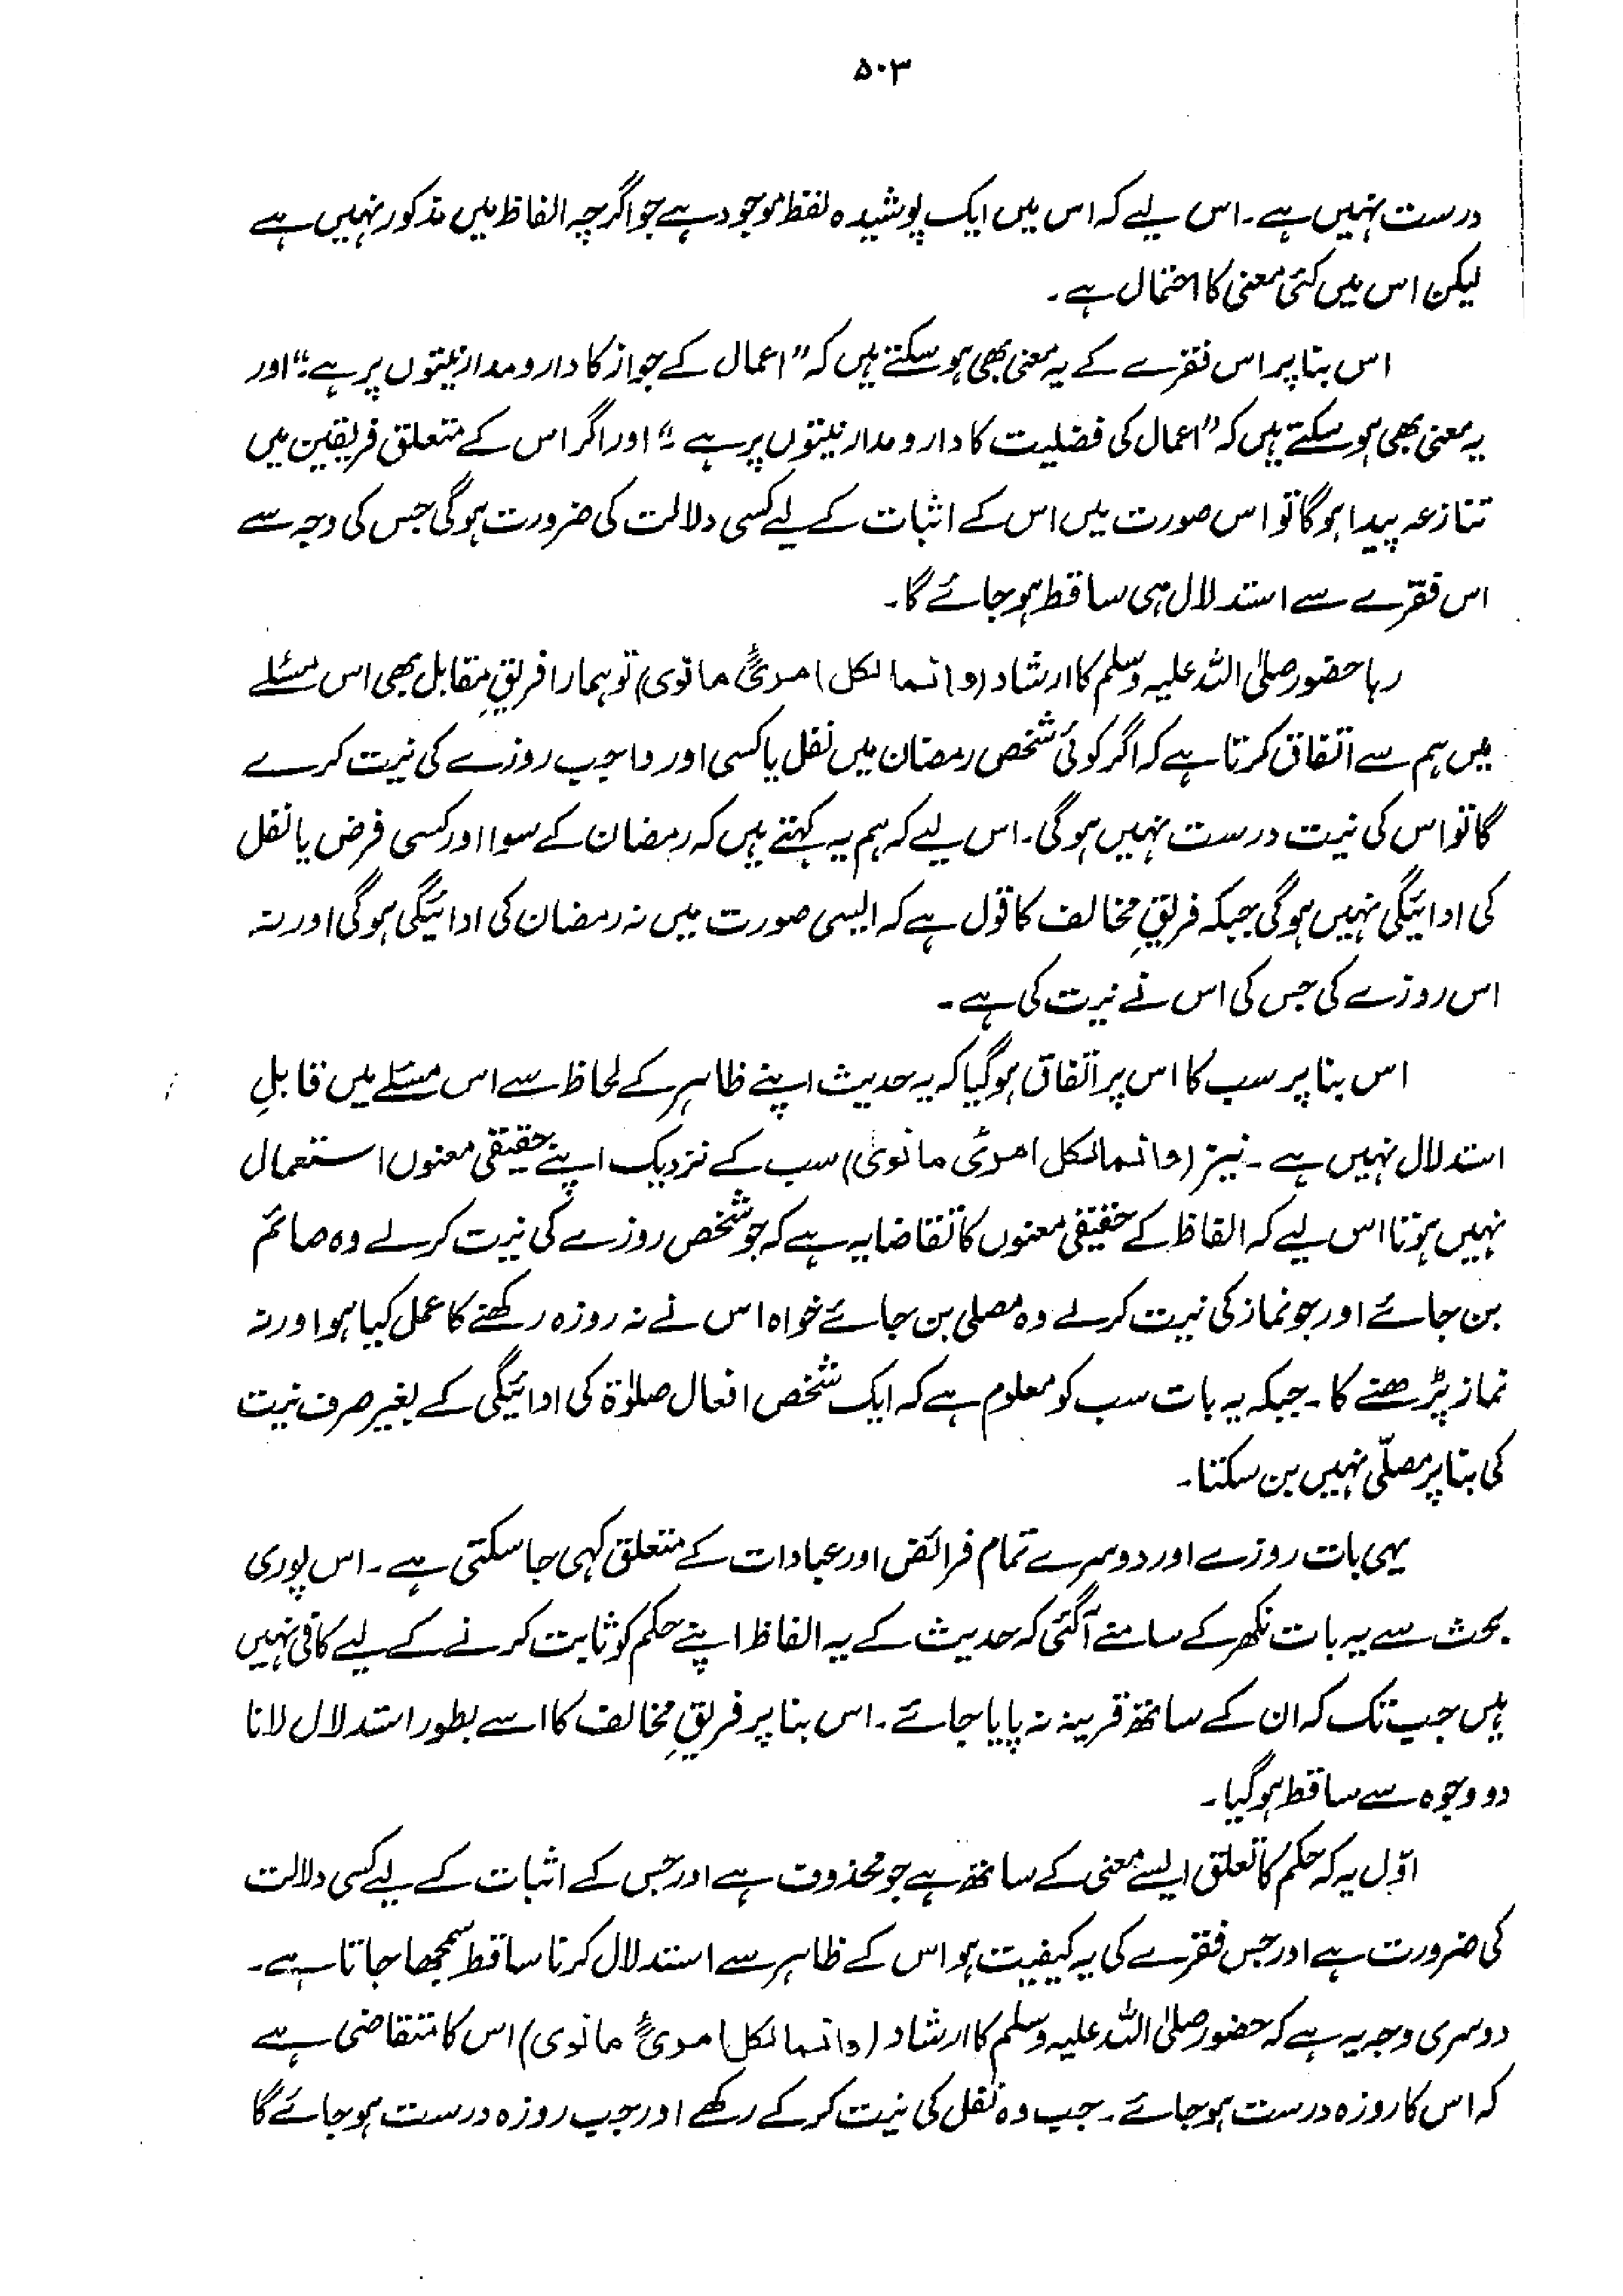 ۵۰۳
درست نہیں ہے۔ اس لیے کہ اس میں ایک پوشیدہ لفظ موجود ہے جو اگرچہ الفاظ میں مذکور نہیں ہے
لیکن اس میں کئی معنی کا احتمال ہے۔
اس بنا پر اس فقرے کے یہ معنی بھی ہو سکتے ہیں کہ "اعمال کے جواز کا دارو مدار نیتوں پر ہے۔" اور
یہ معنی بھی ہو سکتے ہیں کہ "اعمال کی فضلیت کا دارو مدار نیتوں پر ہے۔" اور اگر اس کے متعلق فریقین میں
تنازعہ پیدا ہوگا تو اس صورت میں اس کے اثبات کے لیے کسی دلالت کی ضرورت ہوگی جس کی وجہ سے
اس فقرے سے استدلال ہی ساقط ہو جائے گا۔
رہا حضور صلی اللہ علیہ وسلم کا ارشاد (وانما لکل امرئ مانوی) تو ہمارا فریقِ مقابل بھی اس مسئلے
میں ہم سے اتفاق کرتا ہے کہ اگر کوئی شخص رمضان میں نفل یا کسی اور واجب روزے کی نیت کرے
گا تو اس کی نیت درست نہیں ہوگی۔ اس لیے کہ ہم یہ کہتے ہیں کہ رمضان کے سوا اور کسی فرض یا نفل
کی ادائیگی نہیں ہوگی جبکہ فریقِ مخالف کا قول ہے کہ ایسی صورت میں نہ رمضان کی ادائیگی ہوگی اور نہ
اس روزے کی جس کی اس نے نیت کی ہے۔
اس بنا پر سب کا اس پر اتفاق ہوگیا کہ یہ حدیث اپنے ظاہر کے لحاظ سے اس مسئلے میں قابلِ
استدلال نہیں ہے۔ نیز (وانما لکل امرئ مانوی) سب کے نزدیک اپنے حقیقی معنوں استعمال
نہیں ہوتا اس لیے کہ الفاظ کے حقیقی معنوں کا تقاضا یہ ہے کہ جو شخص روزے کی نیت کرلے وہ صائم
بن جائے اور جو نماز کی نیت کرلے وہ مصلی بن جائے خواہ اس نے نہ روزہ رکھنے کا عمل کیا ہو اور نہ
نماز پڑھنے کا۔ جبکہ یہ بات سب کو معلوم ہے کہ ایک شخص افعال صلوٰۃ کی ادائیگی کے بغیر صرف نیت
کی بنا پر مصلّی نہیں بن سکتا۔
یہی بات روزے اور دوسرے تمام فرائض اور عبادات کے متعلق کہی جا سکتی ہے۔ اس پوری
بحث سے یہ بات نکھر کے سامنے آگئی کہ حدیث کے یہ الفاظ اپنے حکم کو ثابت کرنے کے لیے کافی نہیں
ہیں جب تک کہ ان کے ساتھ قرینہ نہ پایا جائے۔ اس بنا پر فریقِ مخالف کا اسے بطور استدلال لانا
دو وجوہ سے ساقط ہوگیا۔
اوّل یہ کہ حکم کا تعلق ایسے معنی کے ساتھ ہے جو محذوف ہے اور جس کے اثبات کے لیے کسی دلالت
کی ضرورت ہے اور جس فقرے کی یہ کیفیت ہو اس کے ظاہر سے استدلال کرنا ساقط سمجھا جاتا ہے۔
دوسری وجہ یہ ہے کہ حضور صلی اللہ علیہ وسلم کا ارشاد (وانما لکل امرئ مانوی) اس کا متقاضی ہے
کہ اس کا روزہ درست ہو جائے۔ جب وہ نفل کی نیت کرکے رکھے اور جب روزہ درست ہو جائے گا